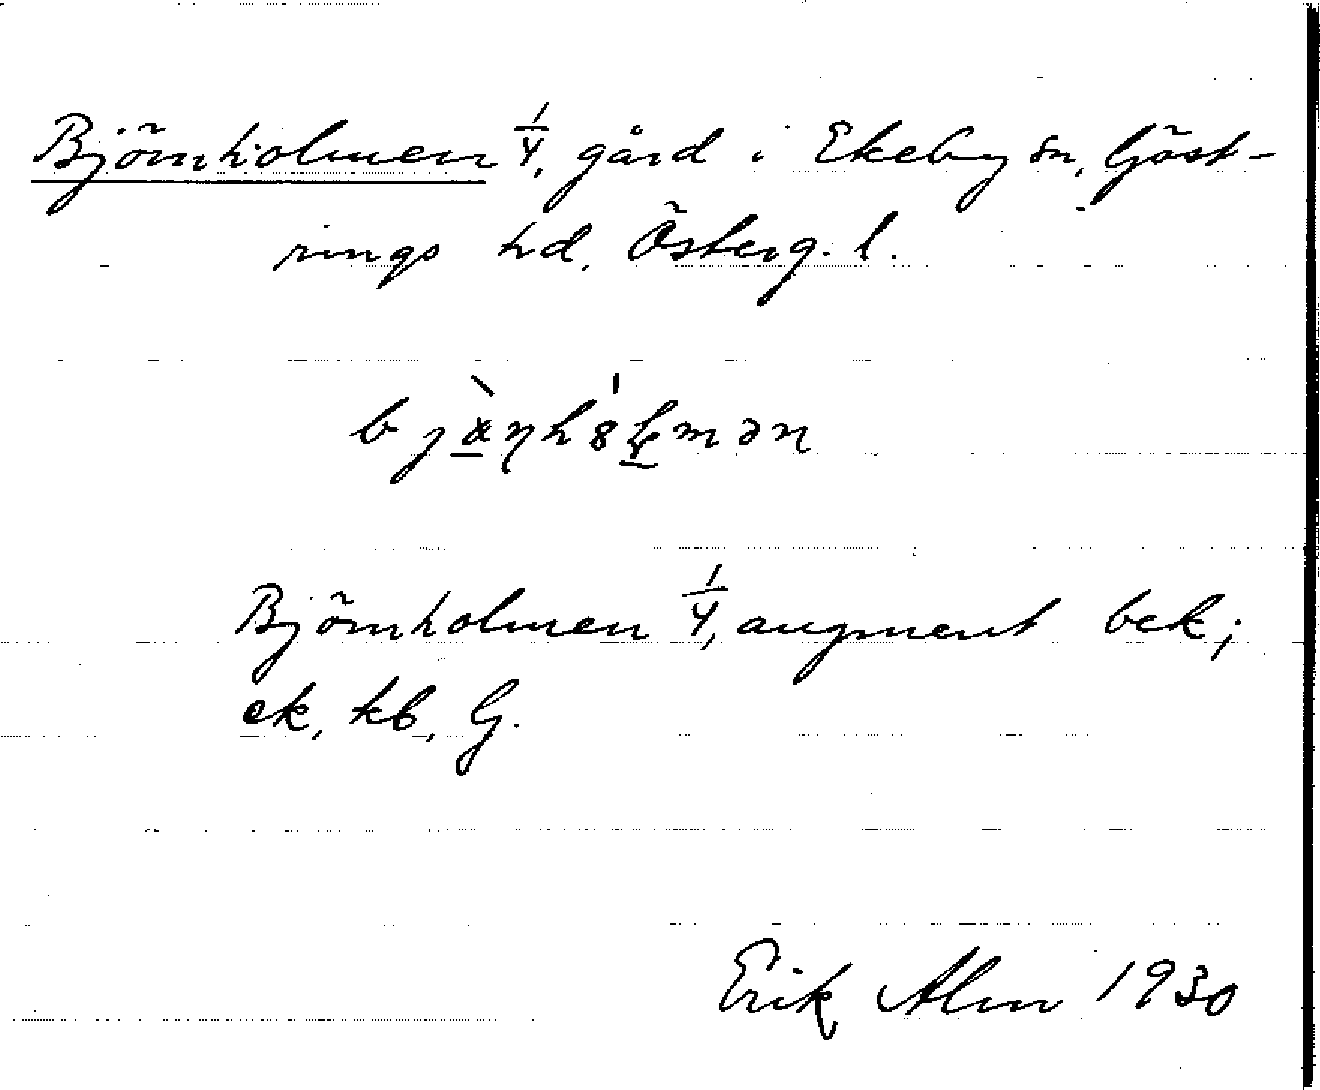 Björnholmen 1/4, gård i Ekeby sn, Göst-
rings hd, Österg. l.
Björnholmen 1/4, augment bek;
ek, kb, G.
Erik Alm 1930